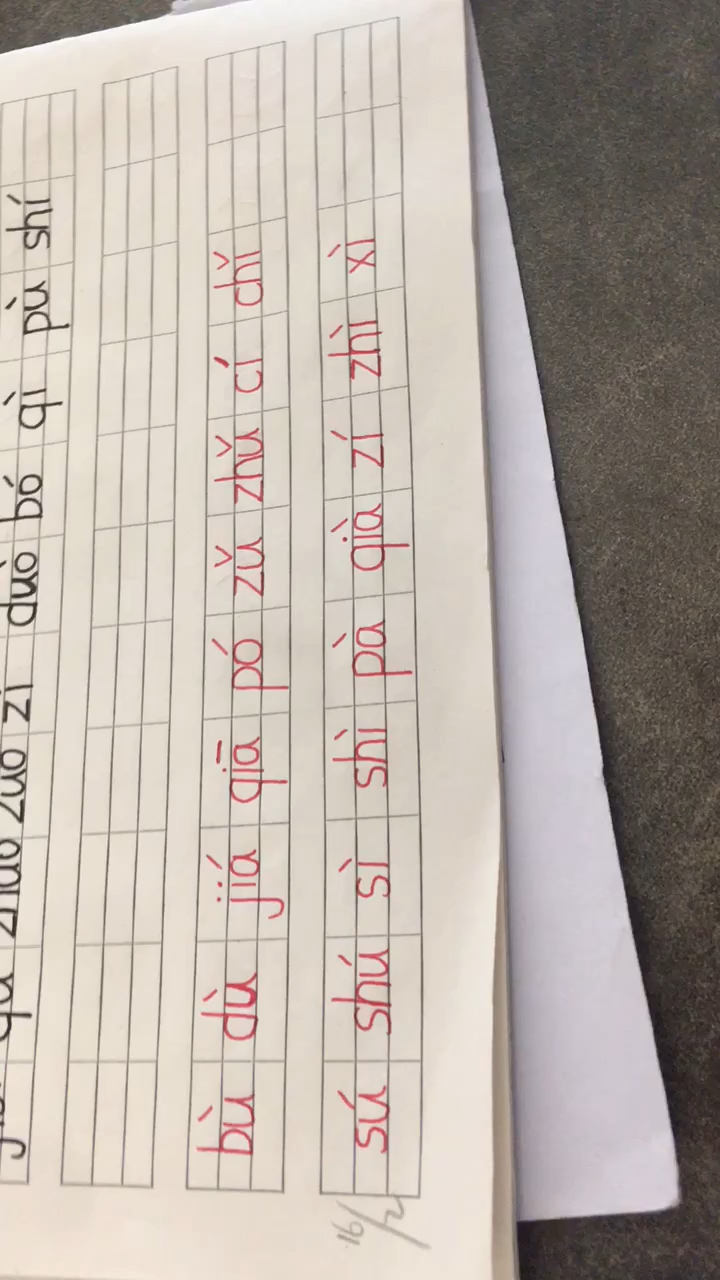 zuò zì duò bó qì pù shí
bù dù jiá qiā pó zǔ zhǔ cí chǐ
sú shú sì shì pà qià zí zhì xì
16/2